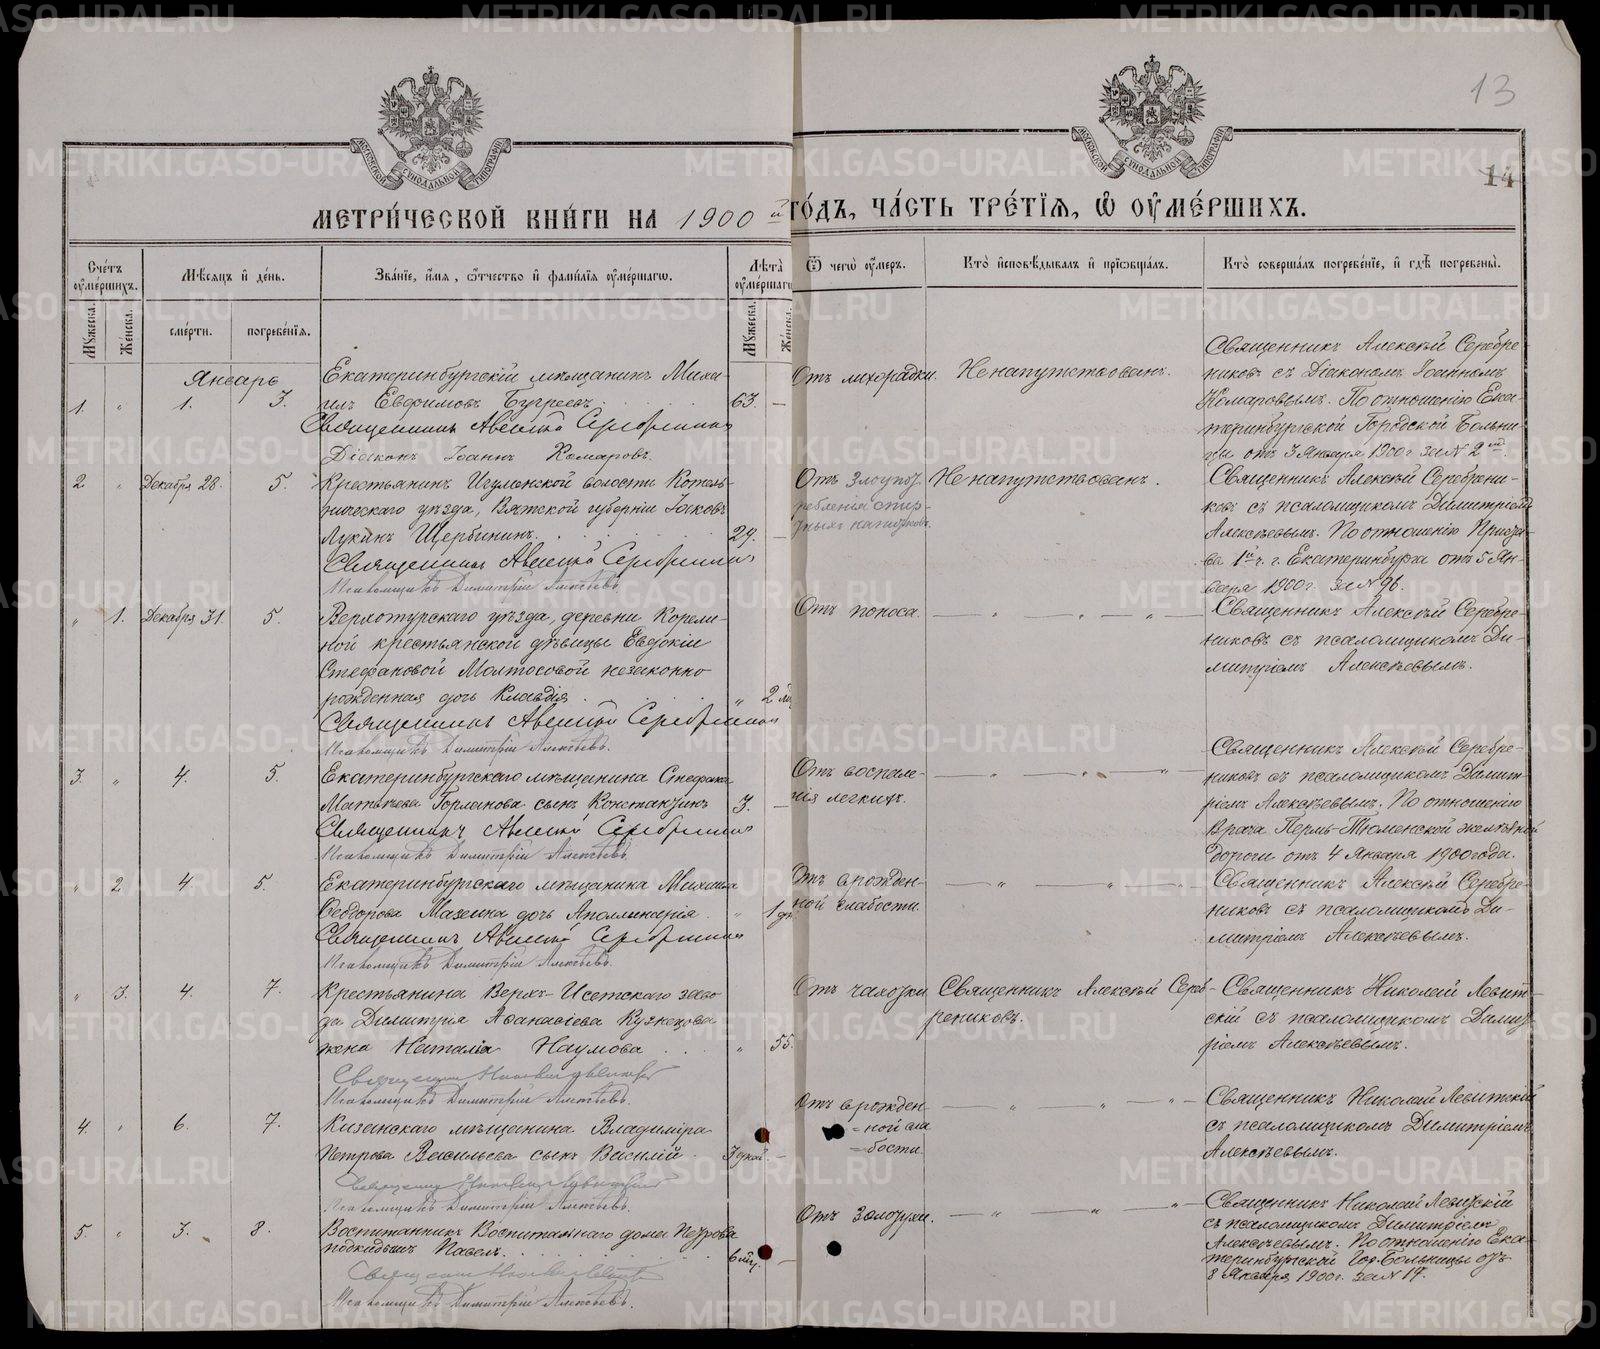 13
14
МОСКОВСКОЙ СѴНОДАЛЬНОЙ ТИПОГРАФІИ
МОСКОВСКОЙ СѴНОДАЛЬНОЙ ТИПОГРАФІИ
МЕТРИ́ЧЕСКОЙ КНИ́ГИ НА 1900 й ГО́ДЪ, ЧА́СТЬ ТРЕ́ТІѦ, Ѽ ОУМЕ́РШИХЪ.
Сче́тъ оуме́ршихъ.
Мѣсяцъ и҆ де́нь.
Зва́ніе, и҆́мя, ѻ҆́тчество и҆ фами́лія оуме́ршагѡ.
Лѣта̀ оуме́ршагѡ
Ѿ чегѡ̀ оу́меръ.
Кто̀ и҆сповѣ́дывалъ и҆ прїѡбща́лъ.
Кто̀ соверша́лъ погребе́ніе, и҆ гдѣ̀ погребены̀.
Мꙋ́жеска. Же́нска. сме́рти. погребе́нія. Мꙋ́жеска. Же́нска.
Январь
1. " 1. 3.
Екатеринбургскій мѣщанинъ Миха-
илъ Евфимовъ Бугреевъ 63. —
Священникъ Алексѣй Серебренниковъ
Діаконъ Іоаннъ Комаровъ.
Отъ лихорадки.
Ненапутствованъ.
Священникъ Алексѣй Серебре-
никовъ съ Діакономъ Іоанномъ
Комаровымъ. По отношенію Ека-
теринбургской Городской Больни-
цы отъ 3 Января 1900 г за № 2 мъ.
2 " Декабря 28. 5.
Крестьянинъ Игуменской волости Котель-
ническаго уѣзда, Вятской губерніи Іаковъ
Лукинъ Щербининъ 29. —
Священникъ Алексѣй Серебренниковъ
Псаломщикъ Димитрій Алексѣевъ.
Отъ злоупот-
ребленія спир-
тныхъ напитковъ.
Ненапутствованъ.
Священникъ Алексѣй Серебрени-
ковъ съ псаломщикомъ Димитріемъ
Алексѣевымъ. По отношенію Приста-
ва 1й ч. г. Екатеринбурга отъ 5 Ян-
варя 1900 г. за № 96.
" 1. Декабря 31. 5.
Верхотурскаго уѣзда, деревни Корели-
ной крестьянской дѣвицы Евдокіи
Стефановой Молтосовой незаконно
рожденная дочь Клавдія " 2 мѣ
Священникъ Алексѣй Серебренниковъ
Псаломщикъ Димитрій Алексѣевъ.
Отъ поноса.
— " — " — " —
Священникъ Алексѣй Серебре-
никовъ съ псаломщикомъ Ди-
митріемъ Алексѣевымъ.
3. " 4. 5.
Екатеринбургскаго мѣщанина Стефана
Матвѣева Горланова сынъ Константинъ 3. —
Священникъ Алексѣй Серебренниковъ
Псаломщикъ Димитрій Алексѣевъ.
Отъ воспале-
нія легкихъ.
— " — " — " —
Священникъ Алексѣй Серебре-
никовъ съ псаломщикомъ Димит-
ріемъ Алексѣевымъ. По отношенію
Врача Пермь-Тюменской желѣзной
дороги отъ 4 Января 1900 года.
" 2. 4. 5.
Екатеринбургскаго мѣщанина Михаила
Феодорова Мазеина дочь Аполлинарія " 1 дн.
Священникъ Алексѣй Серебренниковъ
Псаломщикъ Димитрій Алексѣевъ.
Отъ врожден-
ной слабости.
— " — " — " —
Священникъ Алексѣй Серебре-
никовъ съ псаломщикомъ Ди-
митріемъ Алексѣевымъ.
" 3. 4. 7.
Крестьянина Верхъ-Исетскаго заво-
да Димитрія Афанасіева Кузнецова
жена Наталія Наумова " 55.
Священникъ Николай Левитскій
Псаломщикъ Димитрій Алексѣевъ.
Отъ чахотки
Священникъ Алексѣй Сереб-
рениковъ.
Священникъ Николай Левит-
скій съ псаломщикомъ Димит-
ріемъ Алексѣевымъ.
4. " 6. 7.
Казанскаго мѣщанина Владиміра
Петрова Васильева сынъ Василій 3 дней —
Священникъ Николай Левитскій
Псаломщикъ Димитрій Алексѣевъ.
Отъ врожден-
=ной сла
=бости
— " — " — " —
Священникъ Николай Левитскій
съ псаломщикомъ Димитріемъ
Алексѣевымъ.
5. " 3. 8.
Воспитанникъ Воспитальнаго дома Петрова
подкидышъ Павелъ 6 мѣс. —
Священникъ Николай Левитскій
Псаломщикъ Димитрій Алексѣевъ.
Отъ золотухи.
— " — " — " —
Священникъ Николай Левитскій
съ псаломщикомъ Димитріемъ
Алексѣевымъ. По отношенію Ека-
теринбургской Гор. Больницы отъ
8 Января 1900 г. за № 17.
METRIKI.GASO-URAL.RU